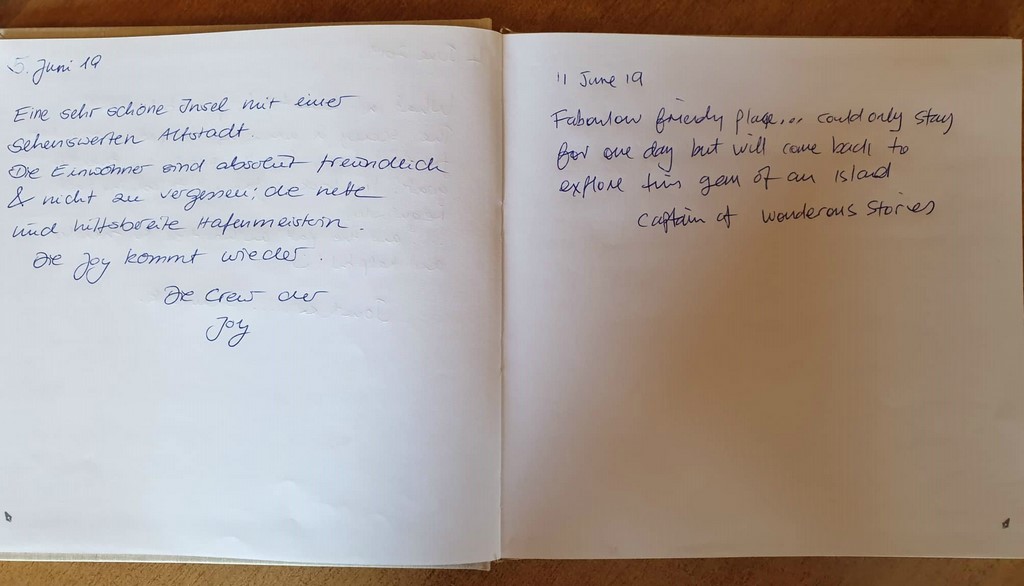 5. Juni 19
Eine sehr schöne Insel mit einer
sehenswerten Altstadt.
Die Einwohner sind absolut freundlich
& nicht zu vergessen; die nette
und hilfsbereite Hafenmeisterin.
Die Joy kommt wieder.
Die Crew der
Joy
11 June 19
Faboulow friendy place... could only stay
for one day but will come back to
explore this gem of an island
Captain of Wonderous Stories